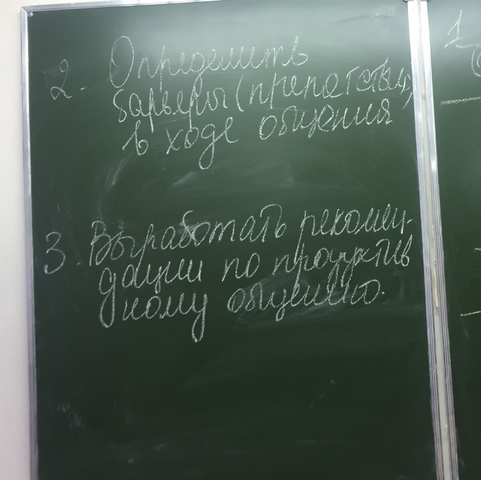 2. Определить
барьеры (препятствия)
в ходе общения
3. Выработать рекомен-
дации по продуктив
ному общению.
1